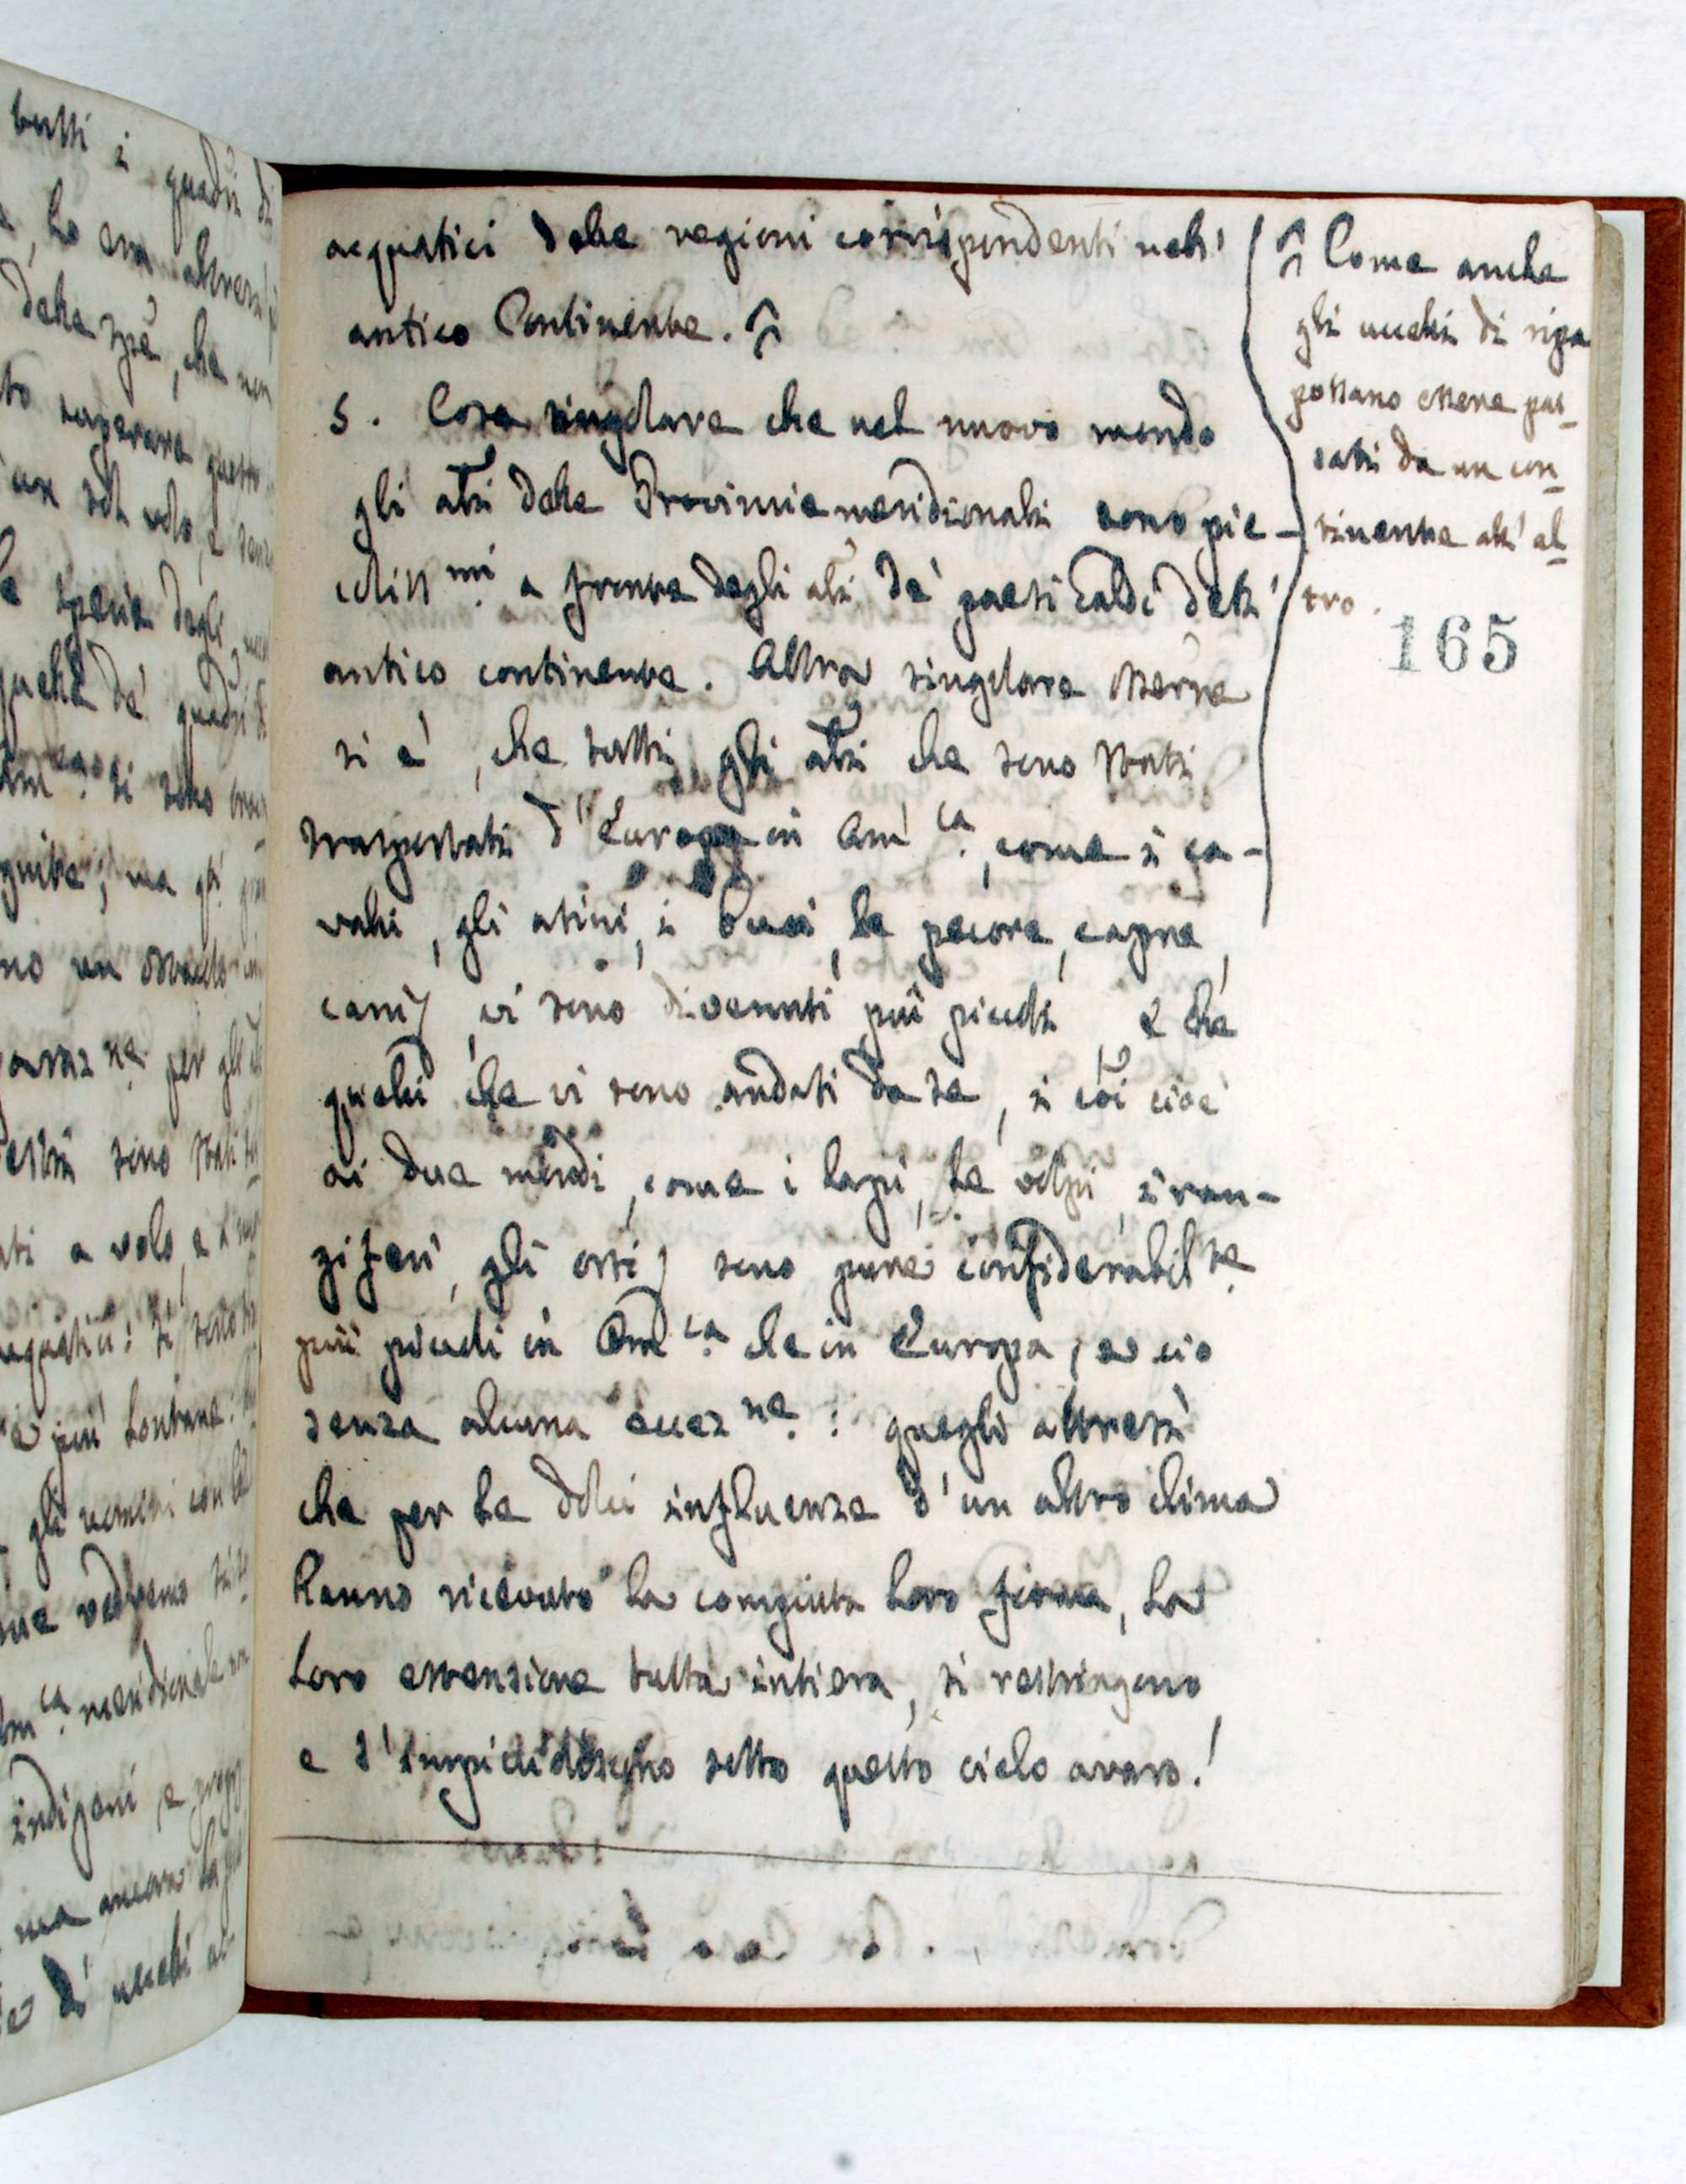 acquatici delle regioni corrispondenti nell'
antico Continente.
5. Cosa singolare che nel nuovo mondo
gli aĩli delle Provincie meridionali sono pic-
coliss.mi a fronte degli aĩli de' paesi caldi dell'
antico continente. Altra singolare osserne
si e', che tutti gli aĩli che sono stati
trasportati d'Europa in Am.ca, come i ca-
valli, gli asini, i buoi, le pecore, capre,
cani, vi sono divenuti più piccoli e che
quelli che vi sono andati da se, i cõi cioè
ai due mondi, come i lupi, le volpi, i ran-
giferi, gli orsi, sono pure considerabil.te
più piccoli in Am.ca che in Europa, e ciò
senza alcuna eccez.ne: quegli altresì
che per la dolci influenze d'un altro clima
hanno ricevuto la compiuta loro forma, la
loro estensione tutta intiera, si restringono
e s'impicciòliscono sotto questo cielo avaro!
Come anche
gli uccelli di ripa
possano essere pas-
sati da un con-
tinente all' al-
tro.
165
tutti i quadri di
delle spe, che non
to superare questo
un sol volo, e senza
le specie degli
quelle de' quadri
si sono
no un ostacolo in
per gli
sono stati
ti a volo, e
acquatici: si sono
più lontane:
gli uomini con le
me vedremo
Am.ca meridionale non
indigeni, e prop
ma ancora la più
e d' uccelli